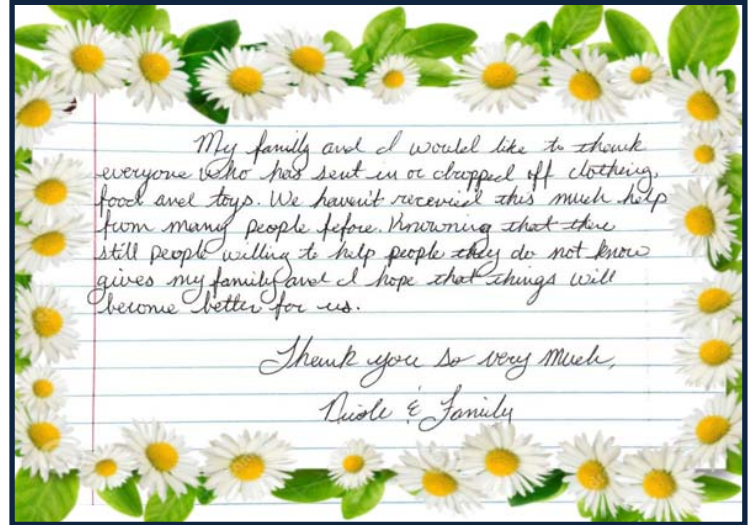 My family and I would like to thank
everyone who has sent in or dropped off clothing,
food and toys. We haven't recevied this much help
from many people fefore. Knowning that there
still people willing to help people they do not know
gives my family and I hope that things will
become better for us.
Thank you so very much,
Nicole & Family